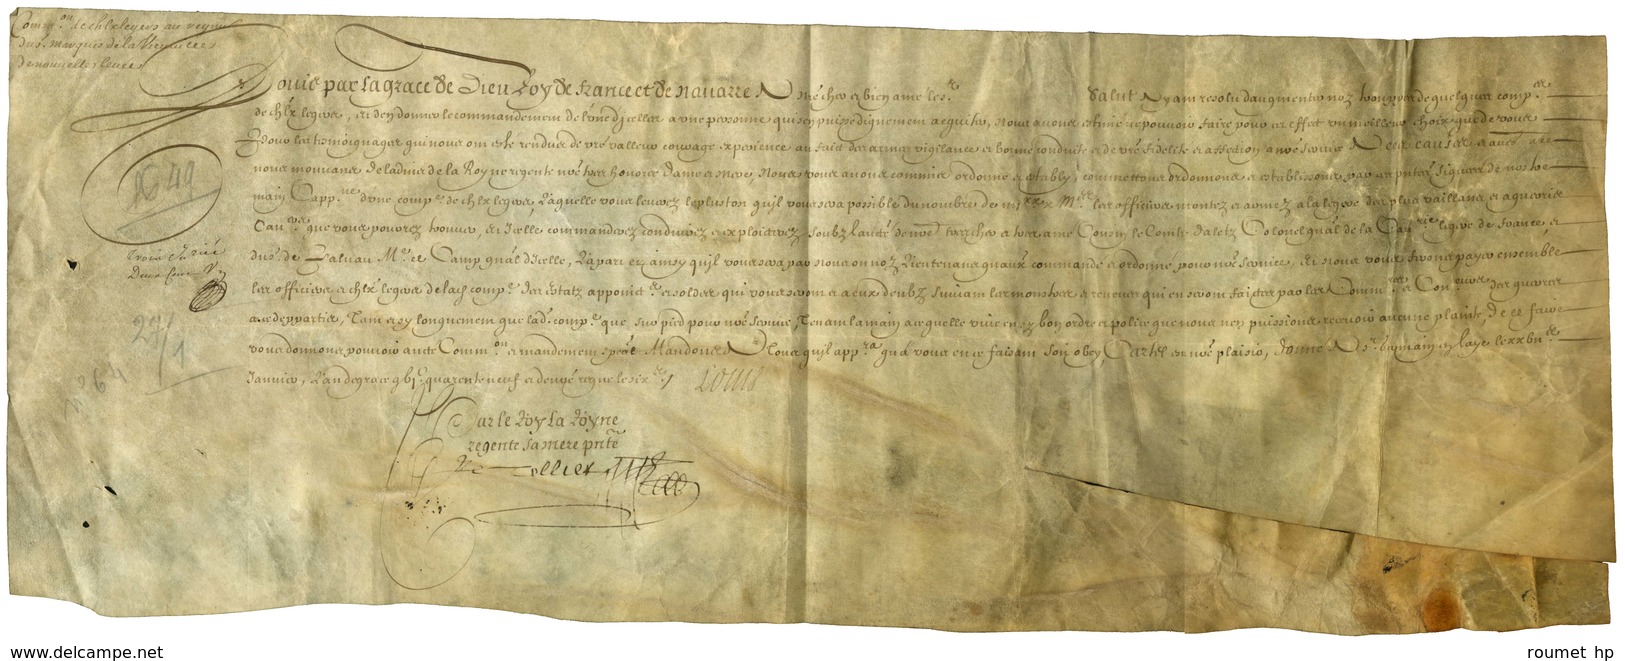 Comm.on de chlx legers au regim.
du s. marquis de la Vieuville
de nouvelles levees
Louis par la grace de Dieu Roy de france et de navarre A n.re cher et bien ame le s.r Salut Ayant resolu d'augmenter noz trouppes de quelques comp.es
de chlx legers, et d'en donner le commandement de l'une d'icelles a une personne qui s'en puisse dignement acquiter, Nous avons estimé ne pouvoir faire pour cet effect un meilleur choix que de vous
Pour les tesmoignages qui nous ont esté rendus de vre valleur courage experience au faict des armes vigilance et bonne conduite et de vre fidelité et affection a nre service A ces causes et autres a ce
nous mouvans De l'advis de la Royne regente nre tres honorée Dame et Mere, Nous vous avons commis ordonné et estably, commettons ordonnons et establissons par ces pntes signées de nostre
main Capp.ne d'une comp.e de chlx legers, Laquelle vous leverez le plustost qu'il vous sera possible du nombre de M.es les officiers montez et armez a la legere des plus vaillans et aguerris
Cau.ers que vous pourrez trouver, et Icelle commanderez conduirez et exploicterez soubz l'aucté de nre tres cher et tres amé Cousin le Comte d'Aletz Colonel gnal de la Cau.rie legere de france, et
du s. de Palluau M.e de Camp gnal d'icelle, La part et ainsy qu'il vous sera par nous ou noz Lieutenans gnaux commandé et ordonné pour nre service, Et nous vous ferons payer ensemble
les officiers et chlx legers de lad. comp.e des estatz appoinct.s et soldes qui vous seront et a eux deubz suivant les monstres et reveues qui en seront faictes par les Comm.res et Con.eurs des guerres
a ce departis, Tant et sy longuement que lad. comp.e sera sur pied pour nre service, Tenant la main a ce quelle vive en sy bon ordre et police que nous n'en puissions recevoir aucune plainte, de ce faire
vous donnons pouvoir aucté Comm.on et mandement spéal Mandons A tous qu'il app.ra qu'a vous en ce faisant soit obey, Car tel est nre plaisir, Donné A S.t Germain en laye le
Janvier, L'an de grace g bjc quarente neuf et de nre regne le six.e /. Louis
Par le Roy La Royne
regente sa mere pnte
Le Tellier
1649
Trois
Deux
27/1
n° 64
roumet hp
www.delcampe.net